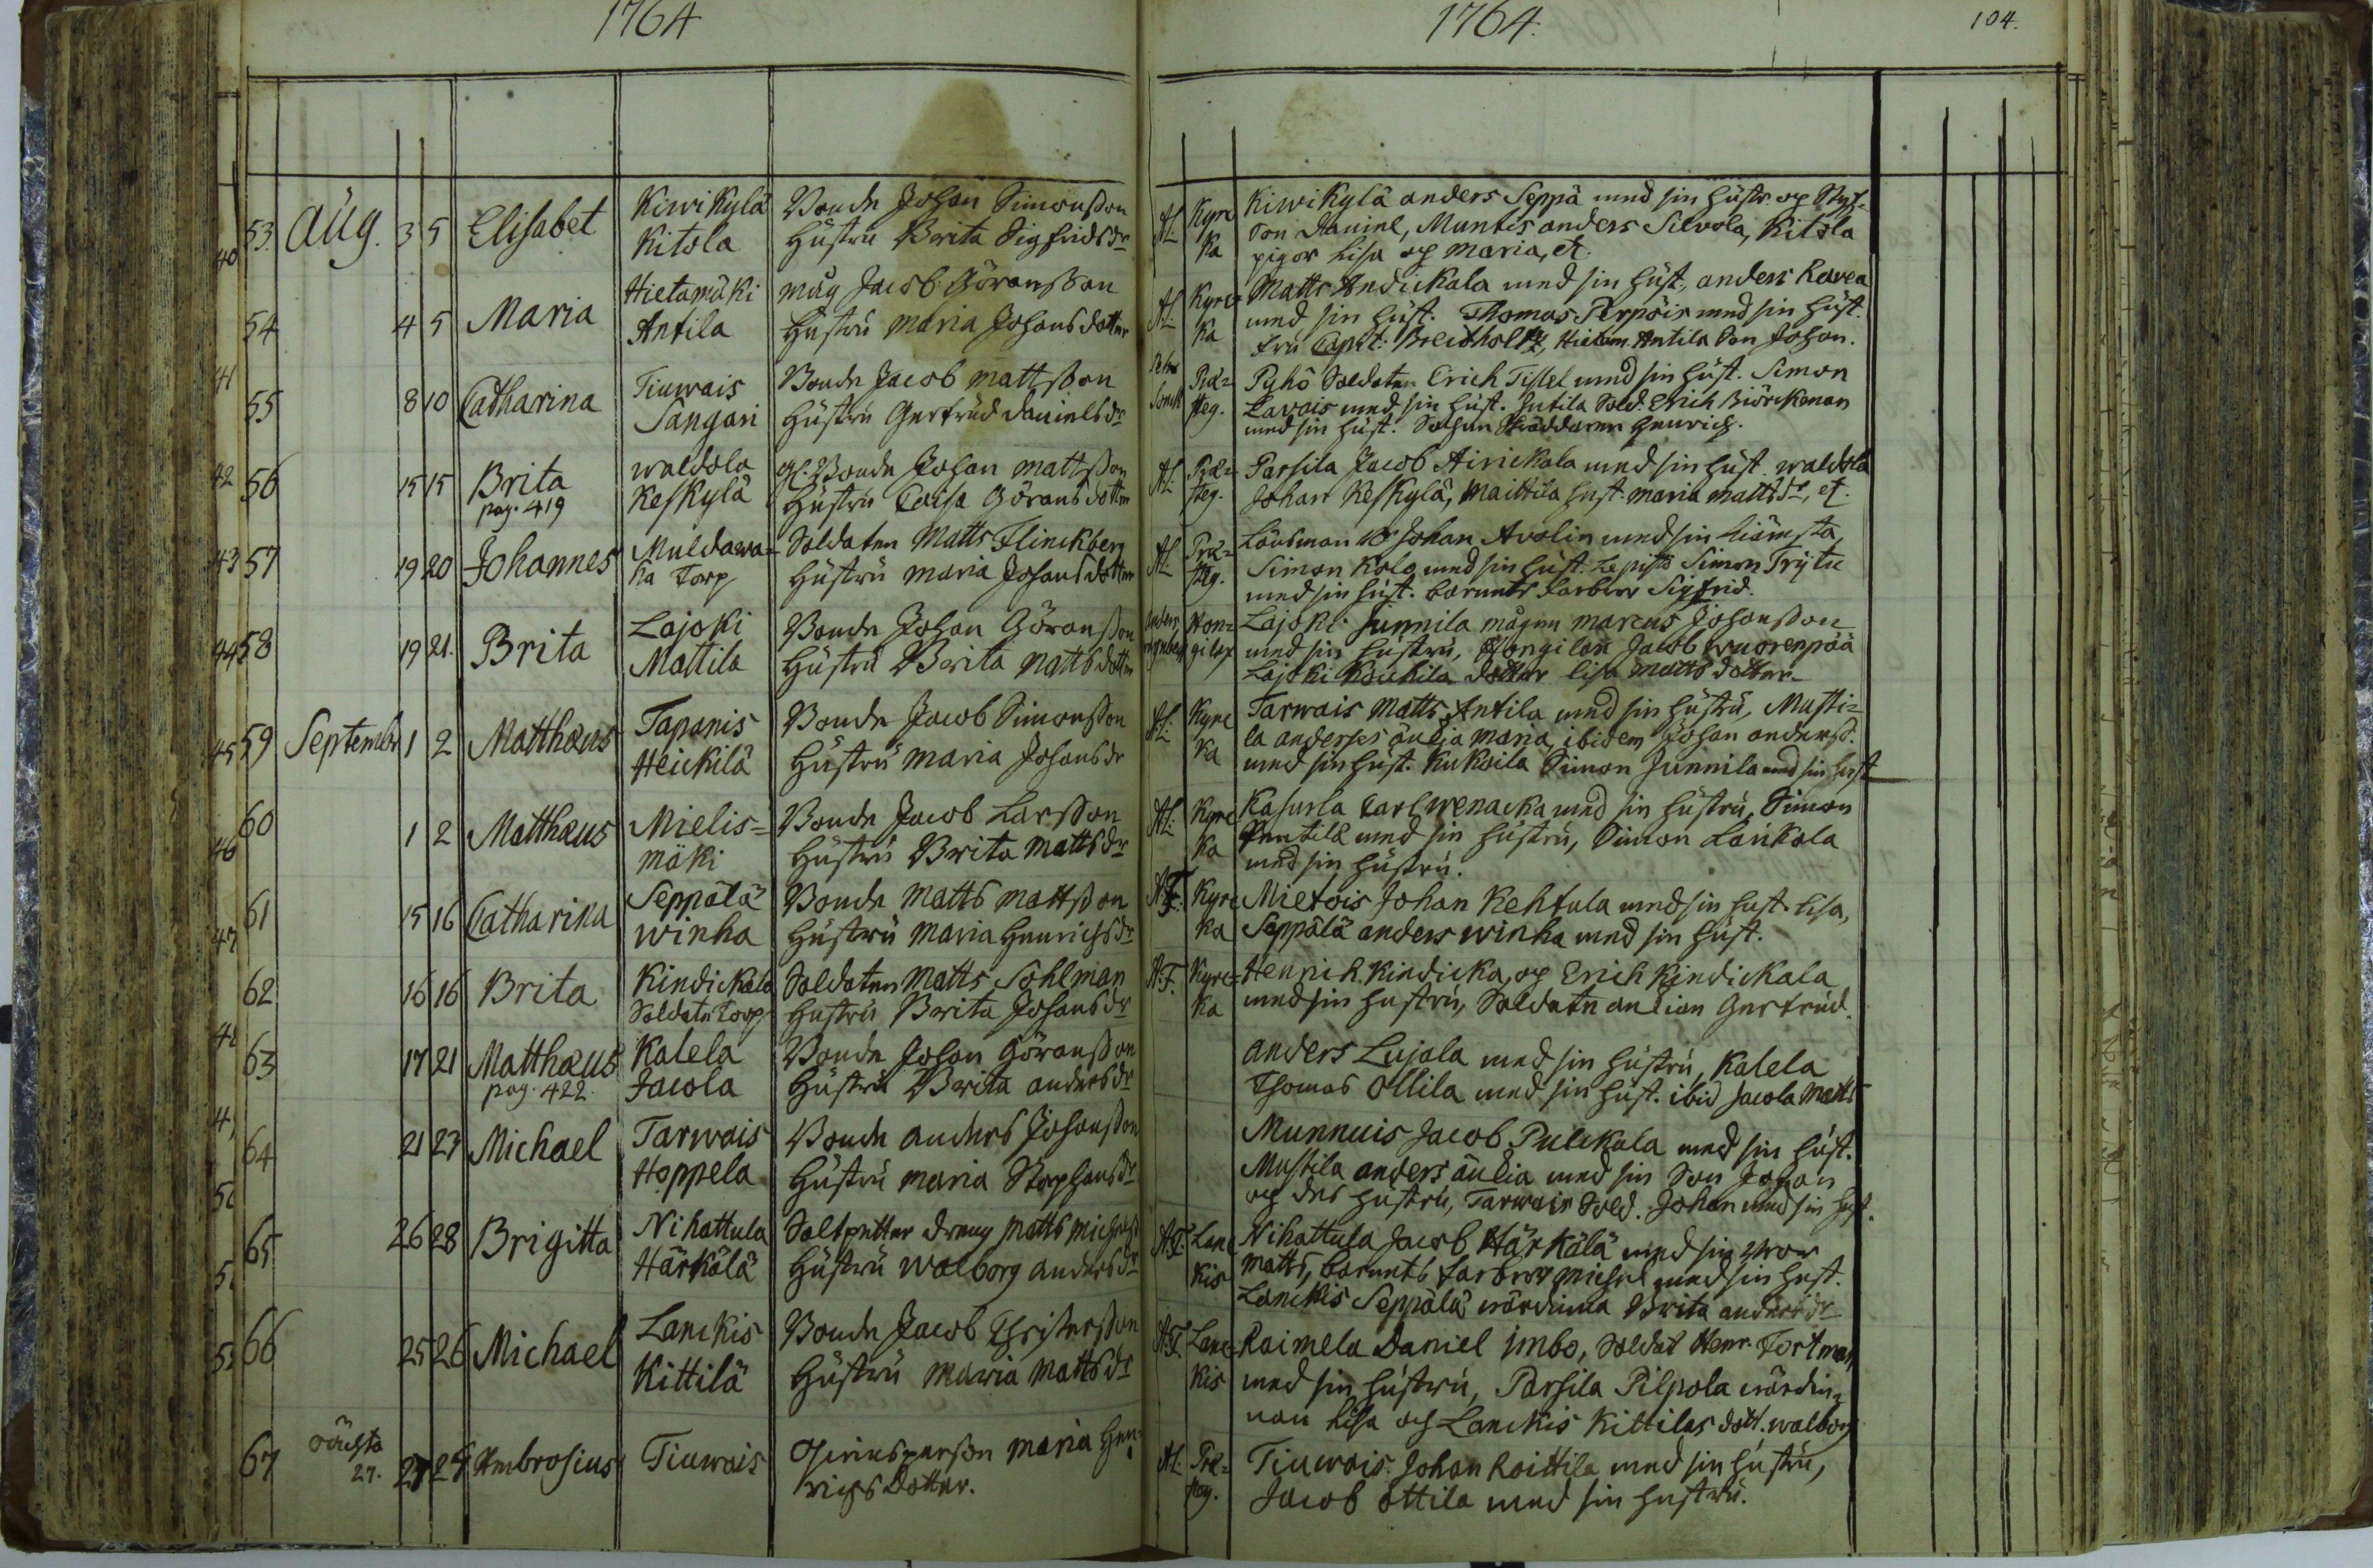 1764
1764.
104.
53. Aug. 3 5 Elisabet Kiwikylä Bonde Johan Simonsson
Kitola Hustru Brita Sigfridsdr
Al: Kyrc Kiwikylä anders Seppä med sin hustr. og
ka son Daniel, Muntis anders Silvola, Kitola
pigor Lisa og Maria, et.
54 4 5 Maria Hietamäki måg Jacob Göransson
Antila Hustru Maria Johans dotter
Al: Kyrc Matts Andickala med sin hust, anders Ravea
ka med sin hust. Thomas Perpöis med sin hust.
fru Capit: Breidholtz, Hietam. Antila Son Johan.
55 8 10 Catharina Tiuwais Bonde Jacob Mattsson
Sangari Hustru Gertrud Danielsdr
Præ= Pyhö Soldaten Erich Tissel med sin hust. Simon
steg. Lavais med sin hust. Sold: Erich Biörckman
med sin hust. Skräddaren Henrich.
56 15 15 Brita waldola gl. Bonde Johan Mattsson
pag. 419 Keskylä Hustru Caisa Görans dotter
Al: Præ= Parsila Jacob Airickala med sin hust. waldola
steg. Johan Keskylä, Maittila hust. Maria Mattsdr, et.
57 19 20 Johannes Muldawa= Soldaten Matts Flinckberg
ka Torp Hustru Maria Johans dotter
Al: Præ= Länsman Johan Avolin med sin
steg. Simon Kolo med sin hust. Simon Trytu
med sin hust. barnets farbror Sigfrid.
58 19 21. Brita Lajoki Bonde Johan Göransson
Mattila Hustru Brita Matts dotter
Hon= Lajoki Junnila mågen Marcus Johansson
gilax med sin hustru, Hongilax Jacob wuorenpää
Lajoki Kouhila dotter Lisa Matts dotter.
59 September 1 2 Matthæus Tapanis Bonde Jacob Simonsson
Heickilä Hustru Maria Johansdr
Al: Kyrc Tarwais Matts Antila med sin hustru, Musti=
ka la anders Maria, ibidem Johan anderss.
med sin hust. Kukoila Simon Junnila med sin hust
60 1 2 Matthæus Mielis= Bonde Jacob Larsson
mäki Hustru Brita Mattsdr
Al: Kyrc Kasurla Carl wenacka med sin hustru, Simon
ka Pentilä med sin hustru, Simon Lankola
med sin hustru.
61 15 16 Catharina Seppälä Bonde Matts Mattsson
winha Hustru Maria Henrichsdr
A.F. Kyrc Mietois Johan Kehtula med sin hust. Lisa,
ka Seppälä anders winha med sin hust.
62 16 16 Brita Kindickala Soldaten Matts Sohlman
Soldate Torp Hustru Brita Johansdr
A.F. Kyrc= Henrich Kindicka, og Erich Kindickala
ka med sin hustru, Soldate änkian Gertrud.
63 17 21 Matthæus Kalela Bonde Johan Göransson
pag. 422. Jacola Hustru Brita andersdr
anders Lujala med sin hustru, Kalela
Thomas Ollila med sin hust. ibid Jacola Matts
64 21 23 Michael Tarwais Bonde anders Johansson
Hoppela Hustru Maria Stephansdr
Munnuis Jacob Pulckala med sin hust.
Mustila anders med sin Son Johan
och des hustru, Tarwais Sold. Johan med sin hust.
65 26 28 Brigitta Nihattula Saltpetter dreng Matts Michelss
Härkälä Hustru Walborg andersdr
A.F. Lanc Nihattula Jacob Härkälä med sin bror
kis Matts, barnets farbror Michel med sin hust.
Lanckis Seppälä wärdinna Brita andersdr
66 25 26 Michael Lanckis Bonde Jacob Christersson
Kittilä Hustru Maria Mattsdr
A.F. Lanc= Raimela Daniel imbo, Soldat Henr. Fortman
kis med sin hustru, Parsila Pilpola wärdin=
nan Lisa och Lanckis Kittilas dott. walborg
67 oächta
27. Ambrosius Tiuwais qwinsperson Maria Hen=
richs Dotter.
Al: Præ= Tiuwais Johan Roittila med sin hustru,
steg. Jacob ottila med sin hustru.